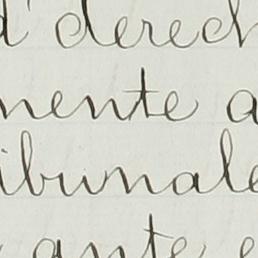 d' derech
mente a
ibunale
ante e